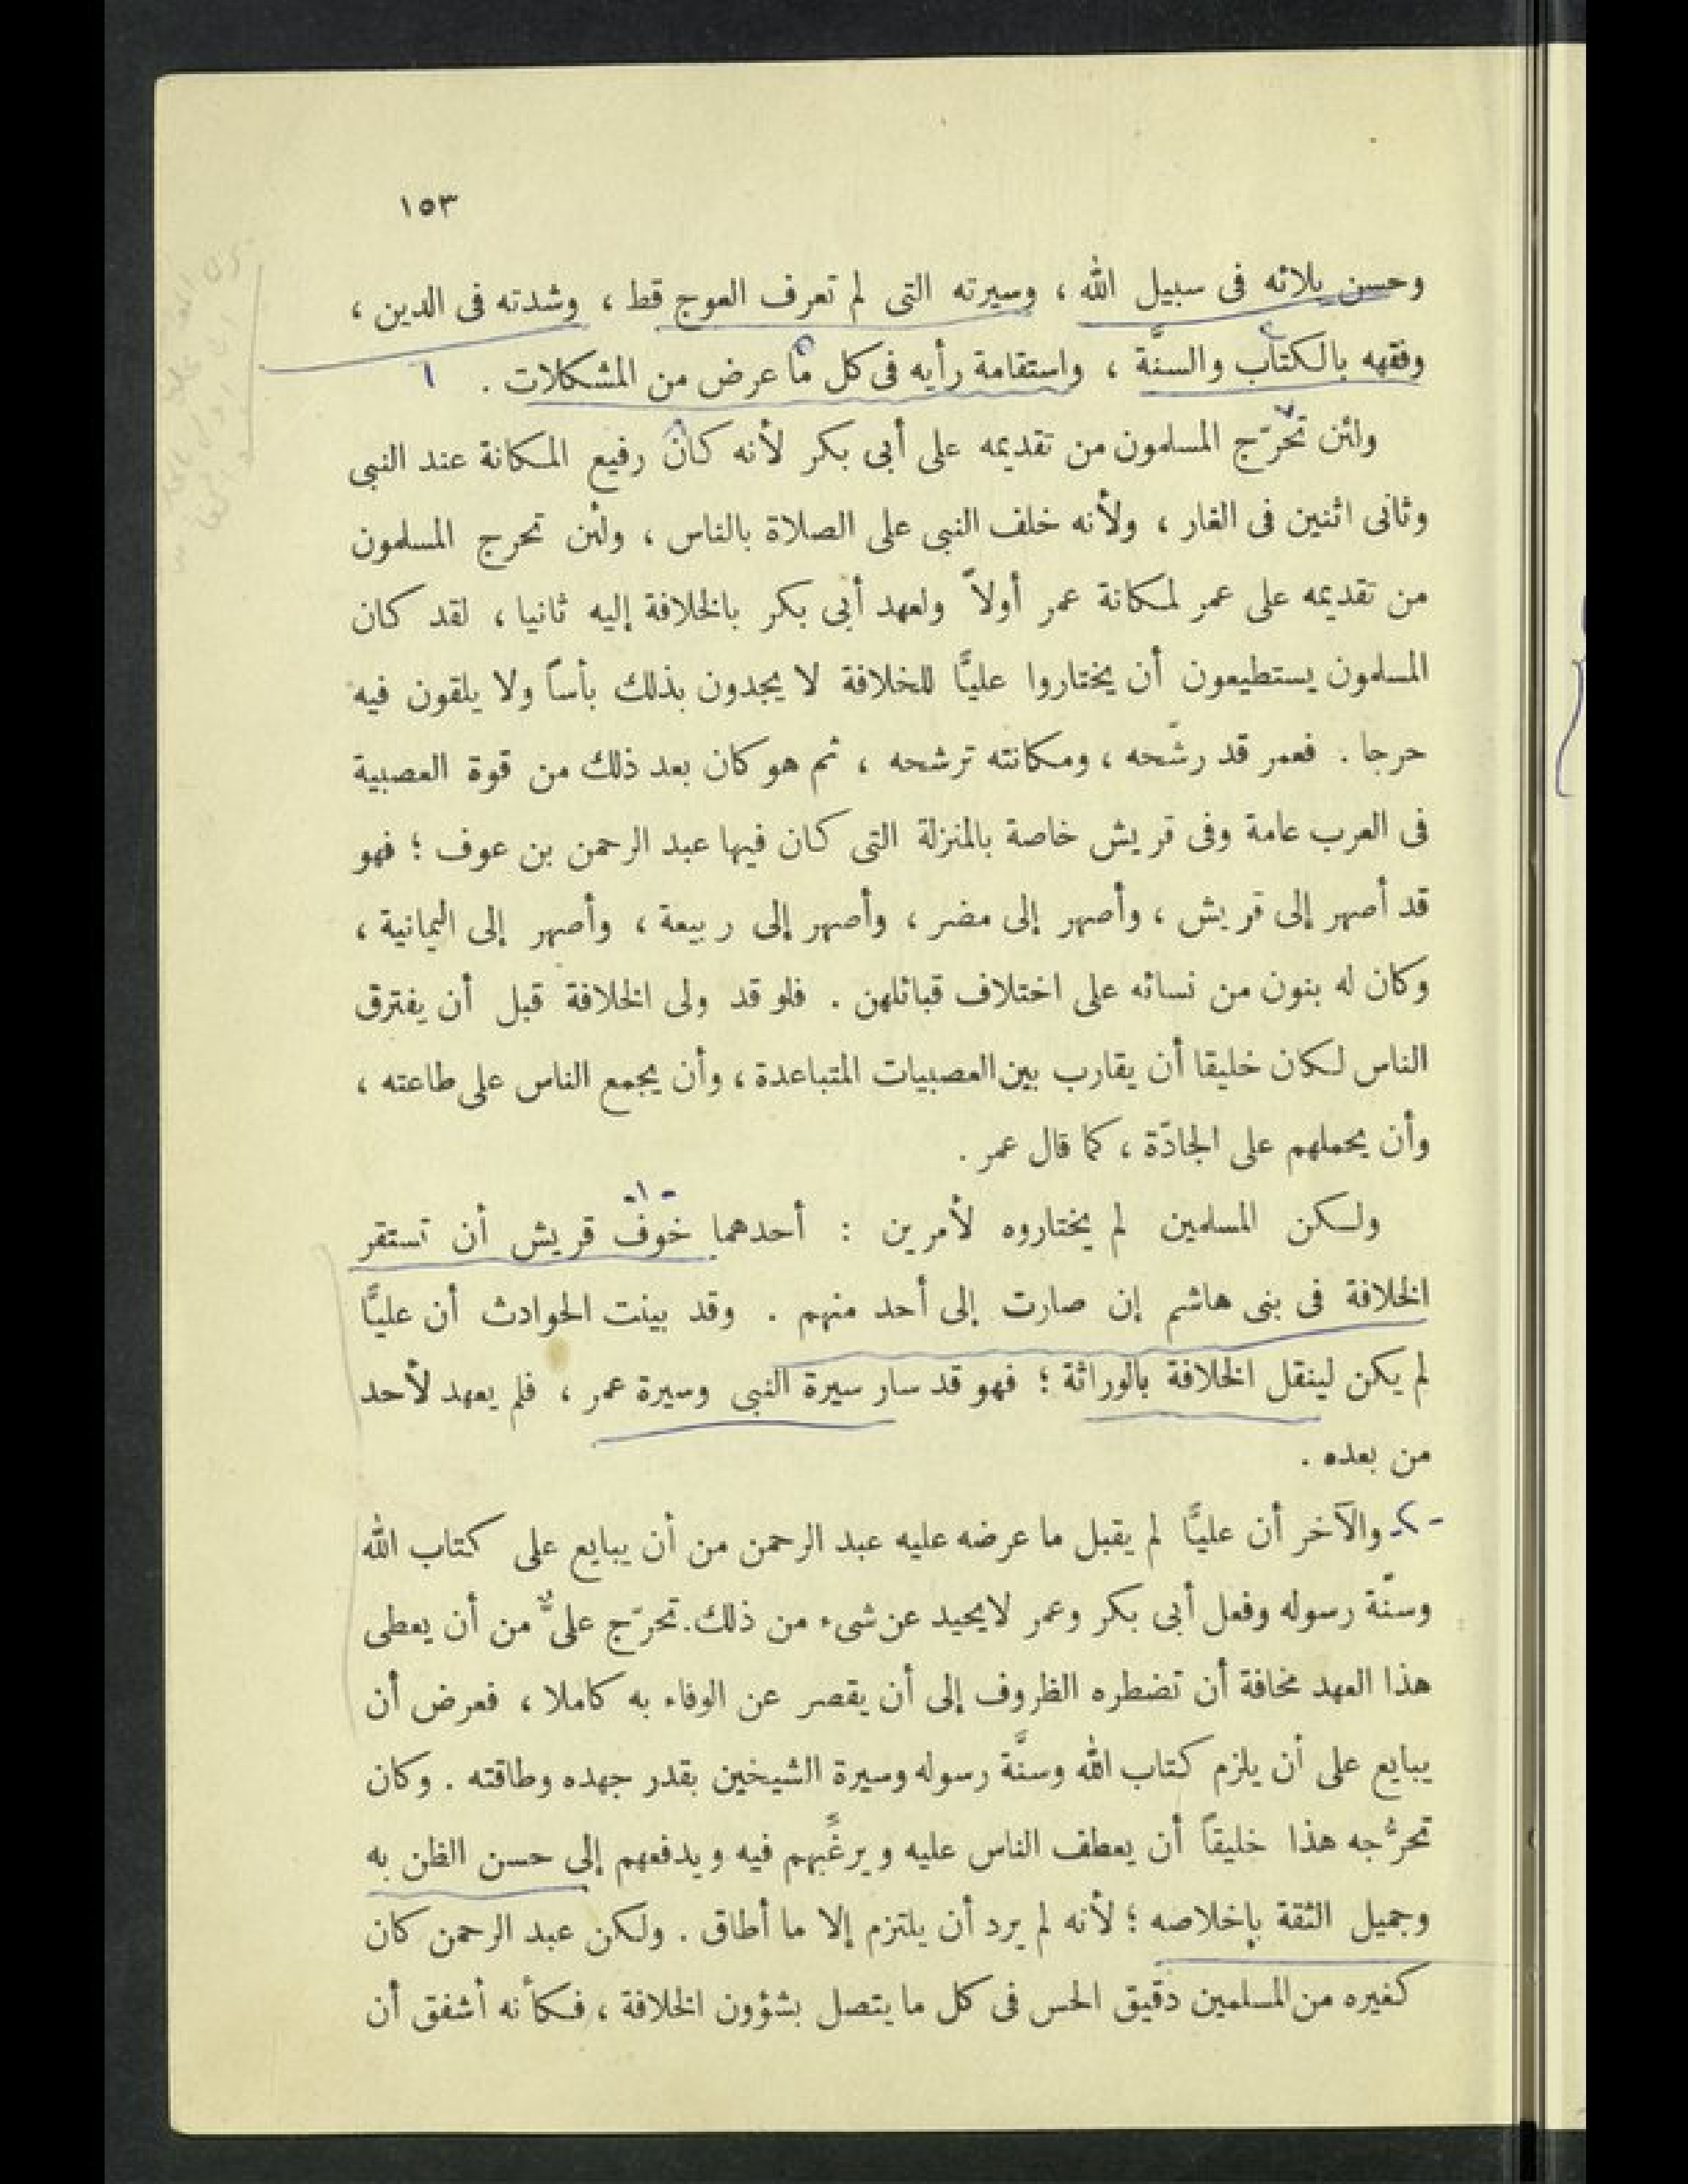 ١٥٣
وحسن بلائه فى سبيل الله ، وسيرته التى لم تعرف العوج قط ، وشدته فى الدين ،
وفقهه بالكتاب والسنَّة ، واستقامة رأيه فى كل ما عرض من المشكلات .
ولئن تحرّج المسلمون من تقديمه على أبى بكر لأنه كان رفيع المكانة عند النبى
وثانى اثنين فى الغار ، ولأنه خلف النبى على الصلاة بالناس ، ولئن تحرج المسلمون
من تقديمه على عمر لمكانة عمر أولاً ولعهد أبى بكر بالخلافة إليه ثانيا ، لقد كان
المسلمون يستطيعون أن يختاروا عليًّا للخلافة لا يجدون بذلك بأساً ولا يلقون فيه
حرجا . فعمر قد رشّحه ، ومكانته ترشحه ، ثم هو كان بعد ذلك من قوة العصبية
فى العرب عامة وفى قريش خاصة بالمنزلة التى كان فيها عبد الرحمن بن عوف ؛ فهو
قد أصهر إلى قريش ، وأصهر إلى مضر ، وأصهر إلى ربيعة ، وأصهر إلى اليمانية ،
وكان له بنون من نسائه على اختلاف قبائلهن . فلو قد ولى الخلافة قبل أن يفترق
الناس لكان خليقا أن يقارب بين العصبيات المتباعدة ، وأن يجمع الناس على طاعته ،
وأن يحملهم على الجادّة ، كما قال عمر .
ولكن المسلمين لم يختاروه لأمرين : أحدهما خوف قريش أن تستقر
الخلافة فى بنى هاشم إن صارت إلى أحد منهم . وقد بينت الحوادث أن عليًّا
لم يكن لينقل الخلافة بالوراثة ؛ فهو قد سار سيرة النبى وسيرة عمر ، فلم يعهد لأحد
من بعده .
-٢- والآخر أن عليًّا لم يقبل ما عرضه عليه عبد الرحمن من أن يبايع على كتاب الله
وسنّة رسوله وفعل أبى بكر وعمر لا يحيد عن شىء من ذلك. تحرّج علىٌّ من أن يعطى
هذا العهد مخافة أن تضطره الظروف إلى أن يقصر عن الوفاء به كاملا ، فعرض أن
يبايع على أن يلزم كتاب الله وسنَّة رسوله وسيرة الشيخين بقدر جهده وطاقته . وكان
تحرُّجه هذا خليقاً أن يعطف الناس عليه ويرغِّبهم فيه ويدفعهم إلى حسن الظن به
وجميل الثقة بإخلاصه ؛ لأنه لم يرد أن يلتزم إلا ما أطاق . ولكن عبد الرحمن كان
كغيره من المسلمين دقيق الحس فى كل ما يتصل بشؤون الخلافة ، فكأنه أشفق أن